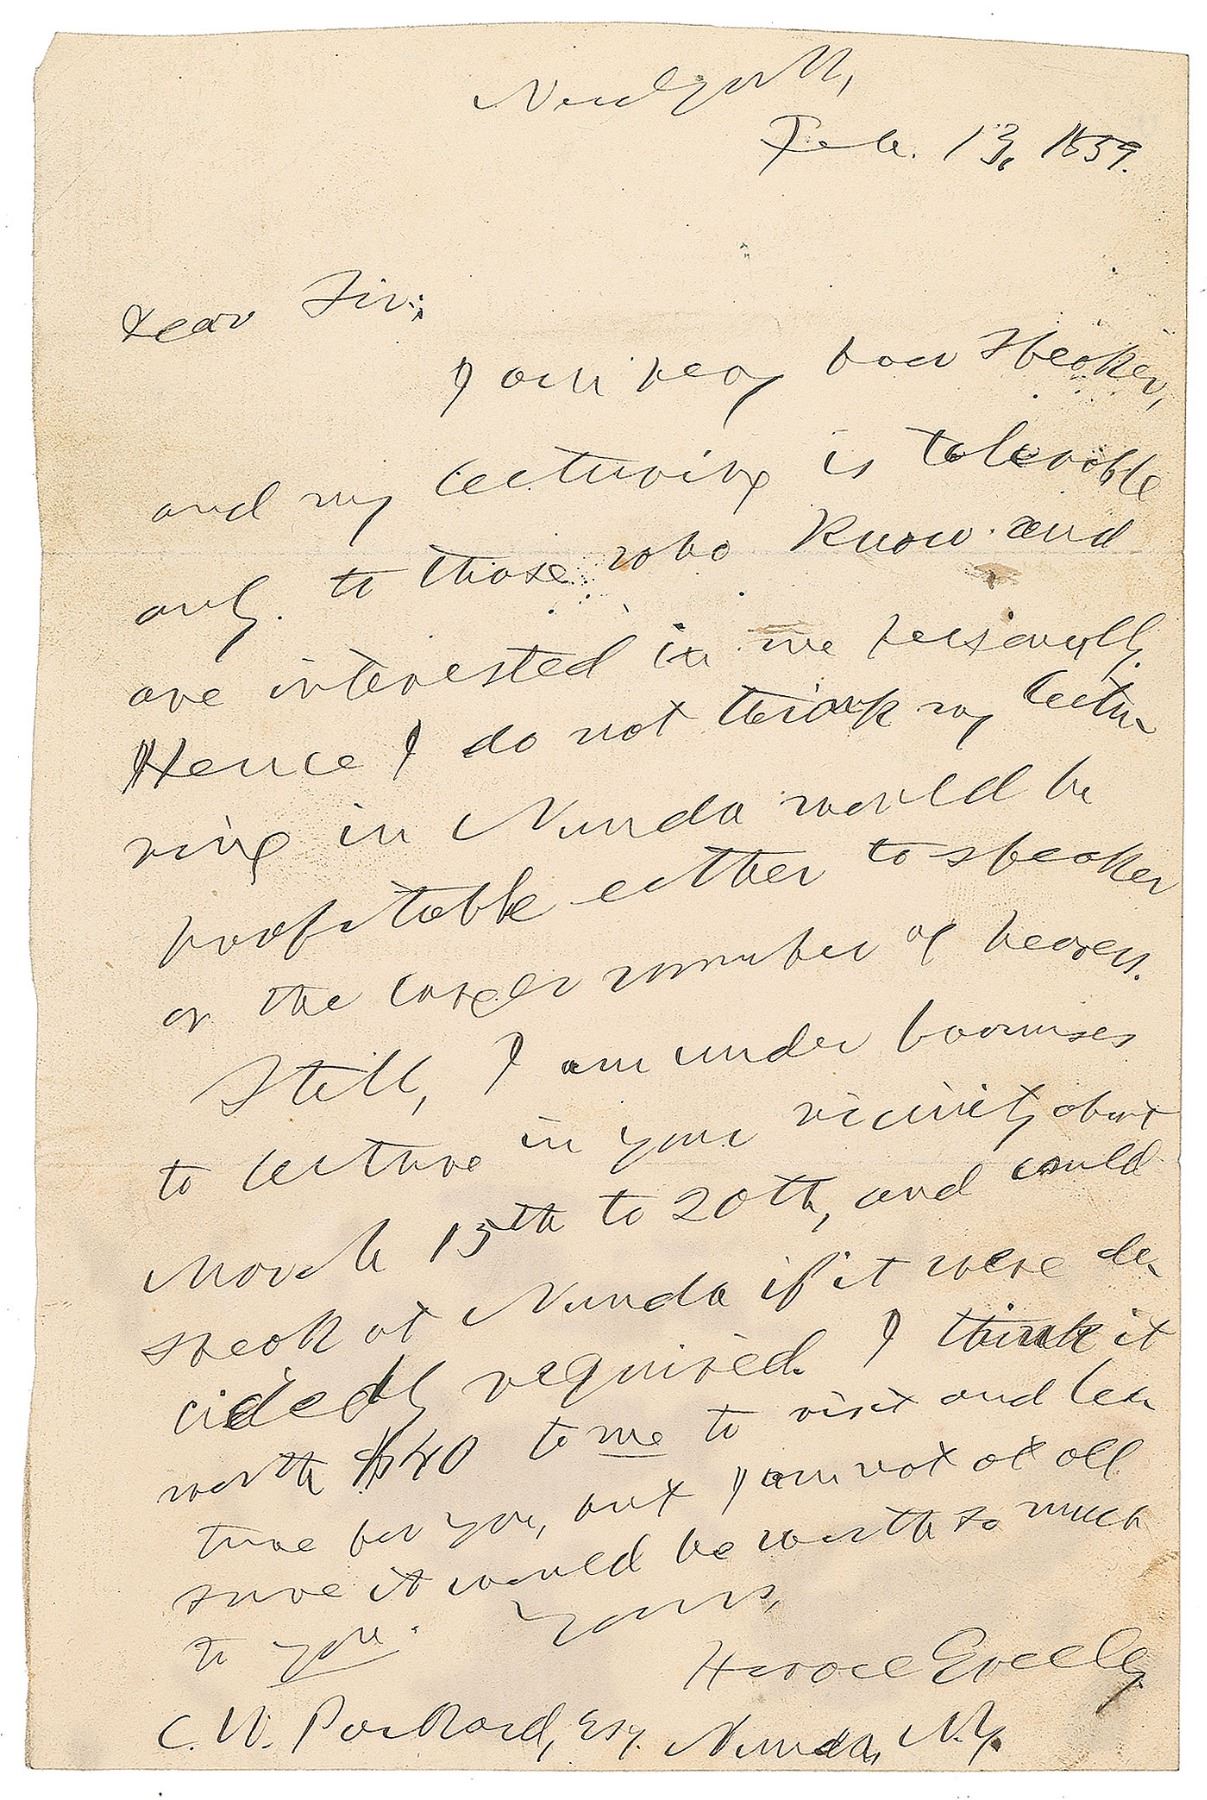 New York,
Feb. 13, 1859.
Dear Sir:
I am very poor speaker,
and my lecturing is tolerable
only to those who know and
are interested in me personally.
Hence I do not think my lectu-
ring in Nunda would be
profitable either to speaker
or the larger number of hearers.
Still, I am under promises
to lecture in your vicinity about
March 15th to 20th, and could
speak at Nunda if it were de-
cidedly required. I think it
worth $40 to me to visit and lec-
ture for you, but I am not at all
sure it would be worth so much
to you. Yours,
Horace Greeley
C. W. Packard, Esq. Nunda, N.Y.